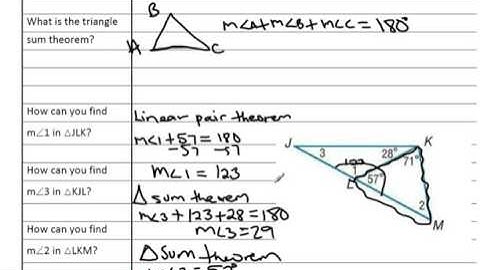 What is the triangle
sum theorem?
B
A
C
m∠A+m∠B+m∠C=180°
How can you find
m∠1 in △JLK?
Linear pair theorem
m∠1+57=180
-57 -57
m∠1 = 123
How can you find
m∠3 in △KJL?
△ sum theorem
m∠3+123+28=180
m∠3=29
How can you find
m∠2 in △LKM?
△ sum theorem
J
3
28°
K
71°
57°
2
M